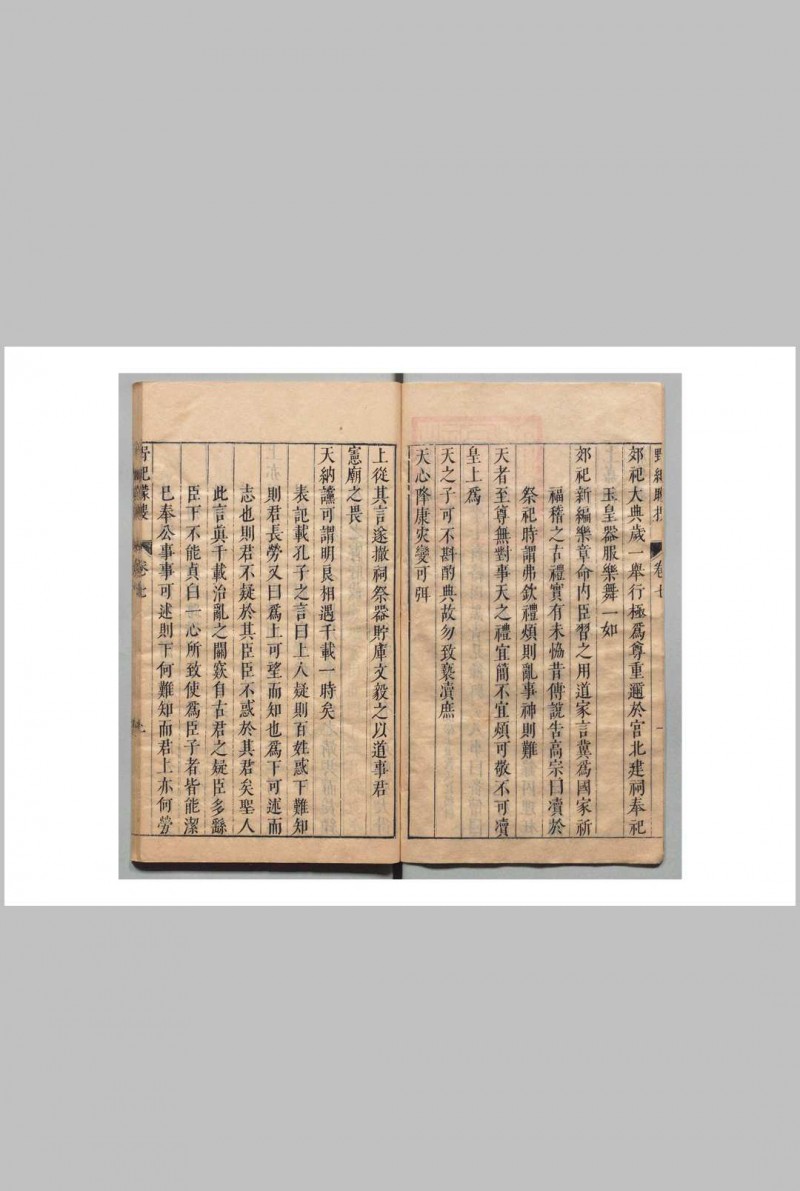 郊祀大典歲一舉行極爲尊重邇於宮北建祠奉祀
玉皇器服樂舞一如
郊祀新編樂章命內臣習之用道家言冀爲國家祈
福稽之古禮實有未恊昔傅說告高宗曰瀆於
祭祀時謂弗欽禮煩則亂事神則難
天者至尊無對事天之禮宜簡不宜煩可敬不可瀆
皇上爲
天之子可不斟酌典故勿致褻瀆庶
天心降康灾變可弭
上從其言遂撤祠祭器貯庫文毅之以道事君
憲廟之畏
天納讜可謂明良相遇千載一時矣
表記載孔子之言曰上人疑則百姓惑下難知
則君長勞又曰爲上可望而知也爲下可述而
志也則君不疑於其臣臣不惑於其君矣聖人
此言眞千載治亂之關竅自古君之疑臣多繇
臣下不能貞白一心所致使爲臣子者皆能潔
已奉公事事可述則下何難知而君上亦何勞
卷七